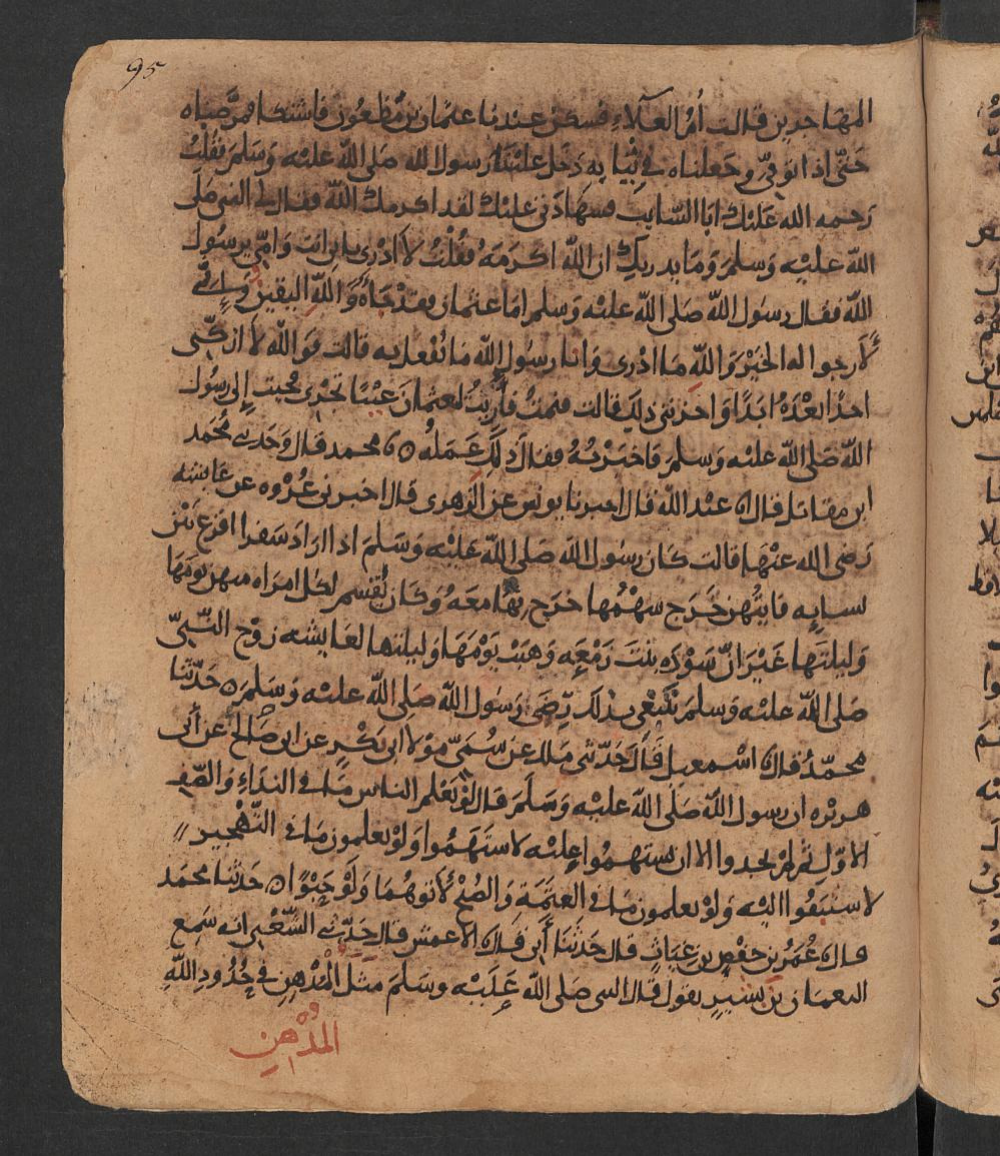 95
المهاجرين قالت أم العلاء فسكن عندنا عثمان بن مظعون فاشتكا فمرّضناه
حتى اذا توفي وجعلناه في ثيابه دخل علينا رسول الله صلى الله عليه وسلم فقلت
رحمه الله عليك ابا السايب فشهادتي عليك لقد اكرمك الله فقال لي النبي صلى
الله عليه وسلم وما يدريك ان الله اكرمه فقلت لا ادري بابي انت وامي يرسول
الله فقال رسول الله صلى الله عليه وسلم اما عثمان فقد جاه والله اليقين واني
لأرجوا له الخير والله ما ادرى وانا رسول الله ما يفعل به قالت فوالله لا ازكى
احدا بعده ابدا واحزنني ذلك قالت فنمت فأريت لعثمان عينا تجرى فجيت إلى رسول
الله صلى الله عليه وسلم فاخبرته فقال ذلك عمله ه محمد قال وحدثني محمد
ابن مقاتل قال عبد الله قال اخبرنا يونس عن الزهرى قال اخبرني عروه عن عايشه
رضى الله عنها قالت كان رسول الله صلى الله عليه وسلم اذا اراد سفرا اقرع بين
نسايه فايتهن خرج سهمها خرج بها معه وكان يقسم لكل امراه منهن يومها
وليلتها غير انّ سوده بنت زمعه وهبت يومها وليلتها لعايشه زوج النبيّ
صلى الله عليه وسلم تبتغى بذلك رضى رسول الله صلى الله عليه وسلم ه حدّثنا
محمد قال اسمعيل قال حدثني ملك عن سميّ مولا ابى بكر عن ابى صالح عن أبى
هريره ان رسول الله صلى الله عليه وسلم قال لو يعلم الناس ما في النداء والصف
الاوّل ثم لم يجدوا الا ان يستهموا عليه لاستهموا ولو يعلمون ما في التهجير
لاستبقوا اليه ولو يعلمون ما في العتمة والصبح لأتوهما ولو حبوًا ه حدثنا محمد
قال عمر بن حفص بن غياث قال حدثنا أبى قال الاعمش قال حدّثني الشعبى انه سمع
النعمان بن بشير يقول قال النبى صلى الله عليه وسلم مثل المدهن في حدود الله
المدهن